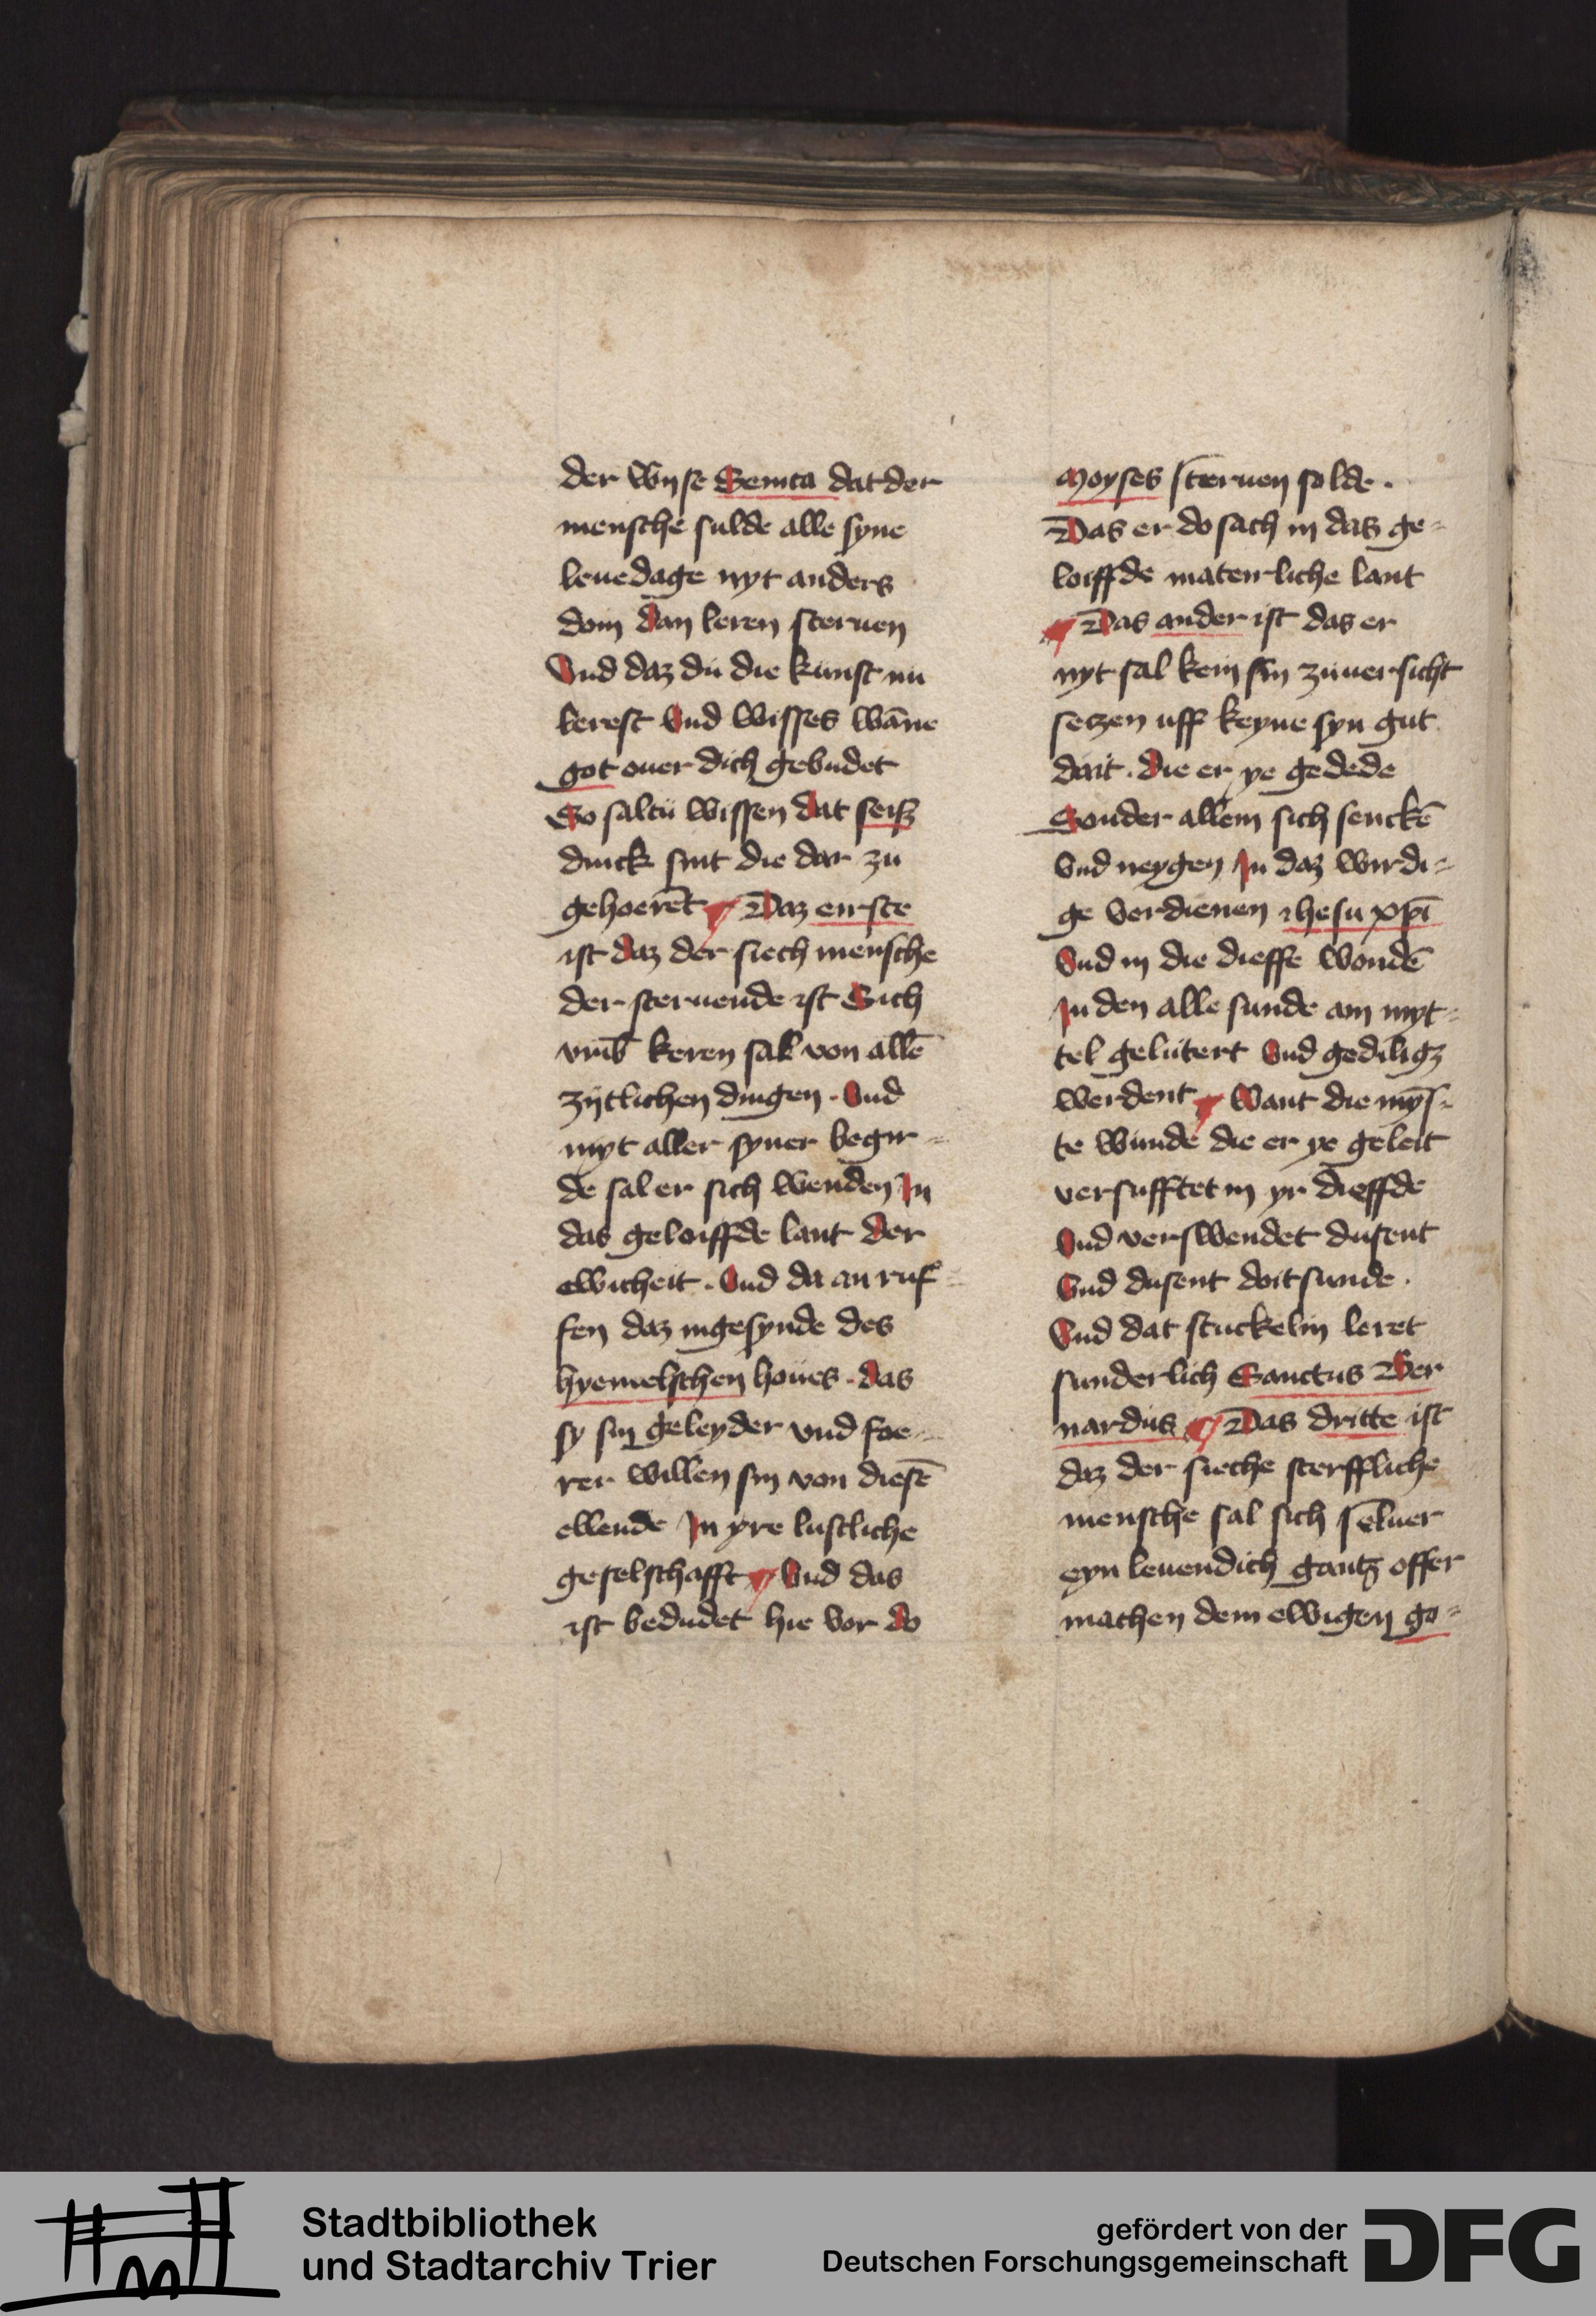 der wyse Senica dat der
mensche sulde alle syne
leuedage nyt anders
doin dan leren steruen
Vnd daz du die kunst nu
lerest Vnd wisses wāne
got ouer dich gebudet
So saltu wissen dat seisz
dinck sint die dar zu
gehoerēt Daz eirste
ist daz der siech mensche
der steruende ist Sich
vmb keren sal von allē
zijtlichen dingen. Vnd
myt aller syner begir-
de sal er sich wenden In
das geloiffde lant der
ewicheit. Vnd da an ruf-
fen daz ingesynde des
hyemelschen houes. das
sy sin geleyder vnd foe-
rer willen sin von diesē
ellende In yre lustliche
geselschafft Vnd das
ist bedudet hie vor do
Moyses steruen solde.
Das er do sach in das ge-
loiffde materliche lant
Das ander ist das er
nyt sal kein sin zuuersicht
setzen uff keyne syn gut
dait. die er ye gedede
Sonder allein sich senckē
Vnd neygen In daz wirdi-
ge Verdienen ihesu xpī
Vnd in die dieffe wondē
In den alle sunde am myt-
tel gelutert Vnd gediligz
werdent Want die myns-
te wunde die er ye geleit
versufftet in yr dieffde
Vnd verswendet dusent
Vnd dusent doitsunde.
Vnd dat stuckelin leret
sunderlich Sanctus Ber
nardus Das dritte ist
daz der sieche sterffliche
mensche sal sich seluer
eyn leuendich gantz offer
machen dem ewigen go-
Stadtbibliothek
und Stadtarchiv Trier
gefördert von der
Deutschen Forschungsgemeinschaft
DFG